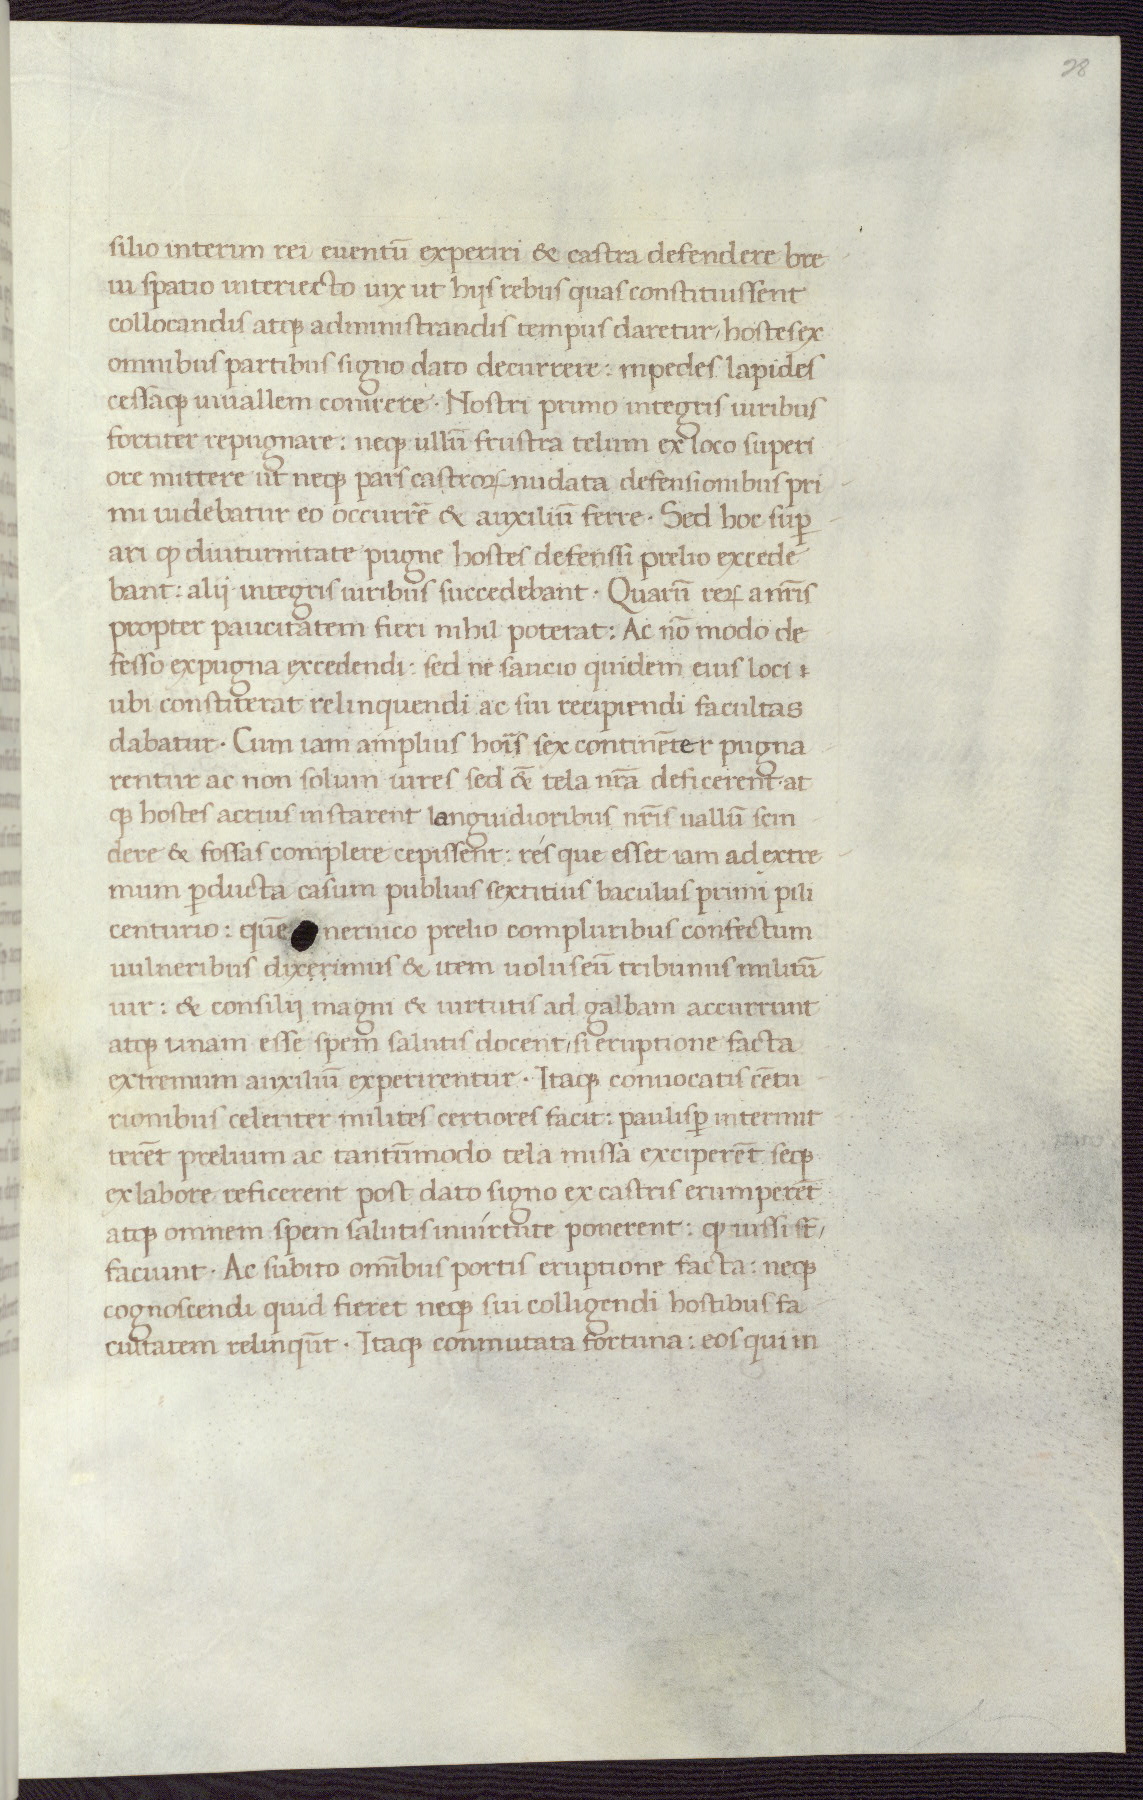 28
silio interim rei euentū experiri & castra defendere bre
ui spatio interiecto uix ut hijs rebus quas constituissent
collocandis atqꝫ administrandis tempus daretur, hostes ex
omnibus partibus signo dato decurrere: inpedes lapides
cessāqꝫ uiuallem conicere · Nostri primo integris uiribus
fortiter repugnare: neqꝫ ullū frustra telum ex loco superi
ore mittere ut neqꝫ pars castroꝝ nudata defensionibus pri
mi uidebatur eo occurrē & auxiliū ferre · Sed hoc suꝑ
ari ꝙ diuturnitate pugne hostes defenssi prelio excede
bant: alij integris uiribus succedebant · Quarū reꝝ a nr̄is
propter paucitatem fieri nihil poterat: Ac nō modo de
fesso expugna excedendi: sed ne saucio quidem eius loci
ubi constiterat relinquendi ac sui recipiendi facultas
dabatur · Cum iam amplius hoīs sex continēter pugna
rentur ac non solum uires sed & tela nr̄a deficerent · at
qꝫ hostes acrius instarent languidioribus nr̄is uallū scin
dere & fossas complere cepissent: res que esset iam ad extre
mum ꝑducta casum publius sextitius baculus primi pili
centurio: quē neruico prelio compluribus confectum
uulneribus dixerimus & item uoluseū tribunus militū
uir: & consilij magni & uirtutis ad galbam accurrunt
atqꝫ unam esse spem salutis docent, si eruptione facta
extremum auxiliū experirentur · Itaqꝫ conuocatis cētu
rionibus celeriter milites certiores facit: paulisꝑ intermit
terēt prelium ac tantūmodo tela missa exciperēt seqꝫ
ex labore reficerent post dato signo ex castris erumperēt
atqꝫ omnem spem salutis inuirtute ponerent: ꝙ iussi st̄,
faciunt · Ac subito omībus portis eruptione facta: neqꝫ
cognoscendi quid fieret neqꝫ sui colligendi hostibus fa
cultatem relinqūt · Itaqꝫ conmutata fortuna: eos qui in